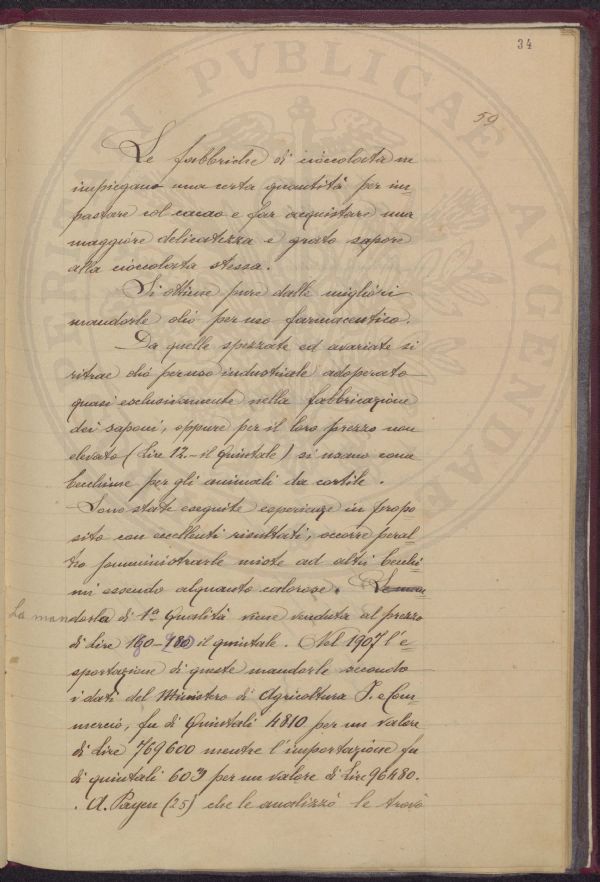 34
59
Le fabbriche di cioccolata ne
impiegano una certa quantità per im=
pastare col cacao e far acquistare una
maggiore delicatezza e grato sapore
alla cioccolata stessa.
Si ottiene pure dalle migliori
mandorle olio per uso farmaceutico.
Da quelle spezzate ed avariate si
ritrae olio per uso industriale adoperato
quasi esclusivamente nella fabbricazione
dei saponi, oppure per il loro prezzo non
elevato (Lire 12.- il quintale) si usano come
becchime per gli animali da cortile.
Sono state eseguite esperienze in propo
sito con eccellenti risultati, occorre peral=
tro somministrarle miste ad altri becchi=
mi essendo alquanto calorose. Le man
La mandorla di 1ª Qualità viene venduta al prezzo
di Lire 160-180 il quintale. Nel 1907 l'e=
sportazione di queste mandorle secondo
i dati del Ministero di Agricoltura I. e Com=
mercio, fu di Quintali 4810 per un valore
di Lire 769600 mentre l'importazione fu
di quintali 603 per un valore di Lire 96480.
A. Payen (25) che le analizzò le trovò
PVBLICAE
AVGENDAE